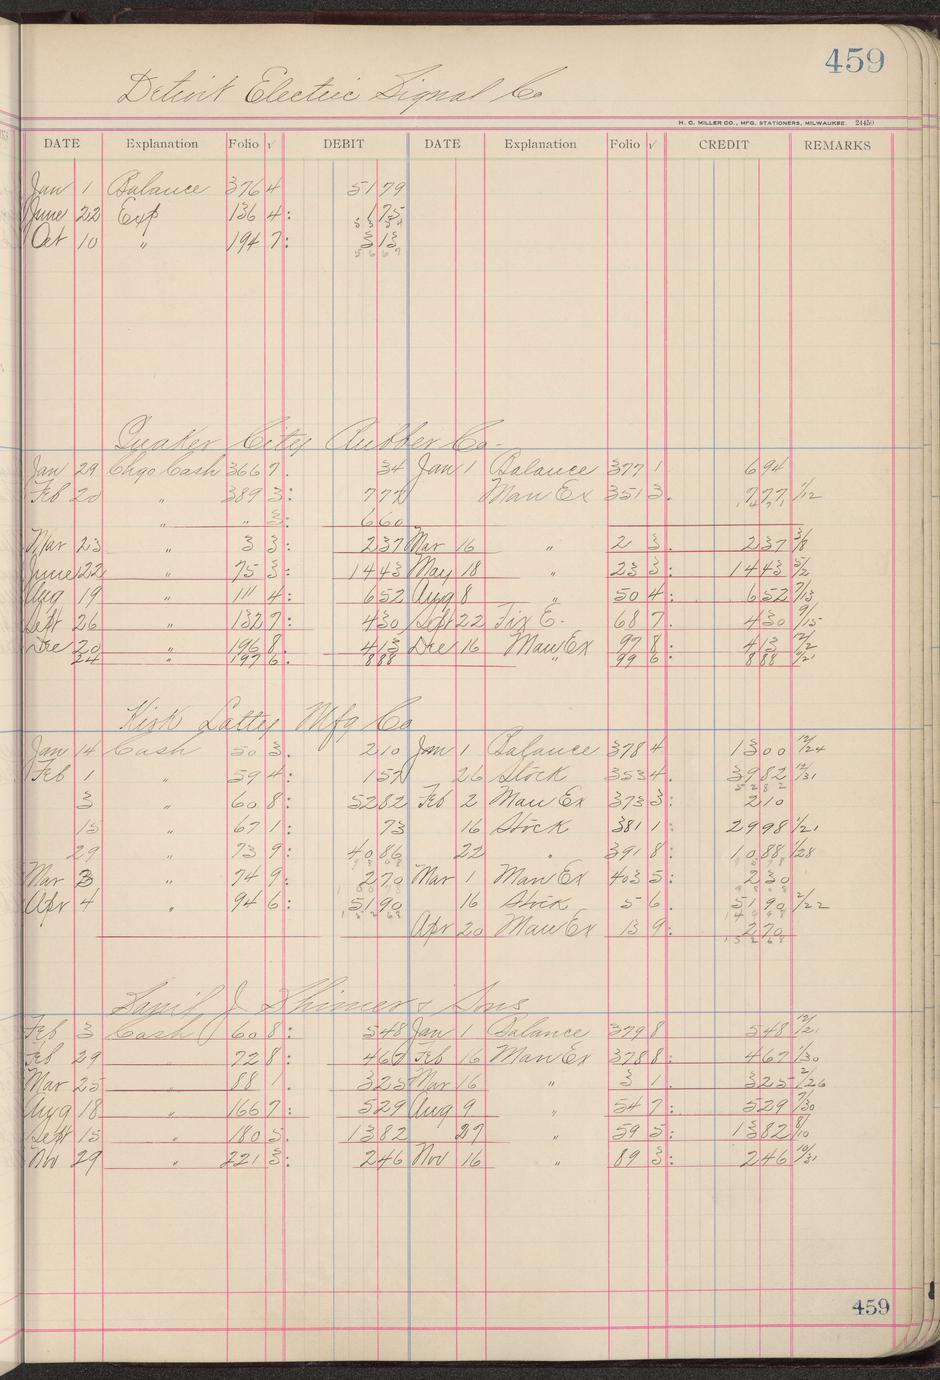 459
Detroit Electric Signal Co
H. C. MILLER CO., MFG. STATIONERS, MILWAUKEE. 24450
DATE Explanation Folio √ DEBIT DATE Explanation Folio √ CREDIT REMARKS
Jan 1 Balance 376 4 51 79
June 22 Exp 136 4: 1 75
53 54
Oct 10 " 194 7: 3 13
56 67
Quaker City Rubber Co-
Jan 29 Chgo Cash 366 7. 34 Jan 1 Balance 377 1 6 94
Feb 20 " 389 3: 7 77 Man Ex 351 3. 7 77 1/12
14 71
" " 3: 6 60
Mar 23 " 3 3: 2 37 Mar 16 " 2 3. 2 37 3/8
June 22 " 75 3: 14 43 May 18 " 23 3: 14 43 5/2
Aug 19 " 111 4: 6 52 Aug 8 " 50 4: 6 52 7/13
Sept 26 " 132 7: 4 30 Sept 22 Fix E. 68 7. 4 30 9/15
Dec 20 " 196 8. 4 13 Dec 16 Man Ex 97 8: 4 13 12/2
24 " 197 6. 8 88 " 99 6: 8 88
Kirk Latty Mfg Co
Jan 14 Cash 50 3. 2 10 Jan 1 Balance 378 4 13 00 12/24
Feb 1 " 59 4: 1 57 26 Stock 353 4. 39 82 12/31
52 82
3 " 60 8: 52 82 Feb 2 Man Ex 373 3: 2 10
15 " 67 1: 73 16 Stock 381 1: 29 98 1/21
29 " 73 9: 40 86 22 " 391 8: 10 88 1/28
Mar 3 " 74 9: 2 70 Mar 1 Man Ex 403 5: 2 30
Apr 4 " 94 6: 51 90 16 Stock 5 6. 51 90 2/22
152 68
Apr 20 Man Ex 13 9: 2 70
152 68
J Shimer & Sons
Feb 3 Cash 60 8: 5 48 Jan 1 Balance 379 8 5 48 12/21
Feb 29 72 8: 4 67 Feb 16 Man Ex 378 8: 4 67 1/30
Mar 25 " 88 1. 3 25 Mar 16 " 3 1. 3 25 2/26
Aug 18 " 166 7: 5 29 Aug 9 " 54 7: 5 29 7/30
Sept 15 " 180 5. 13 82 27 " 59 5: 13 82 8/10
Nov 29 " 221 3: 2 46 Nov 16 " 89 3: 2 46 10/31
459